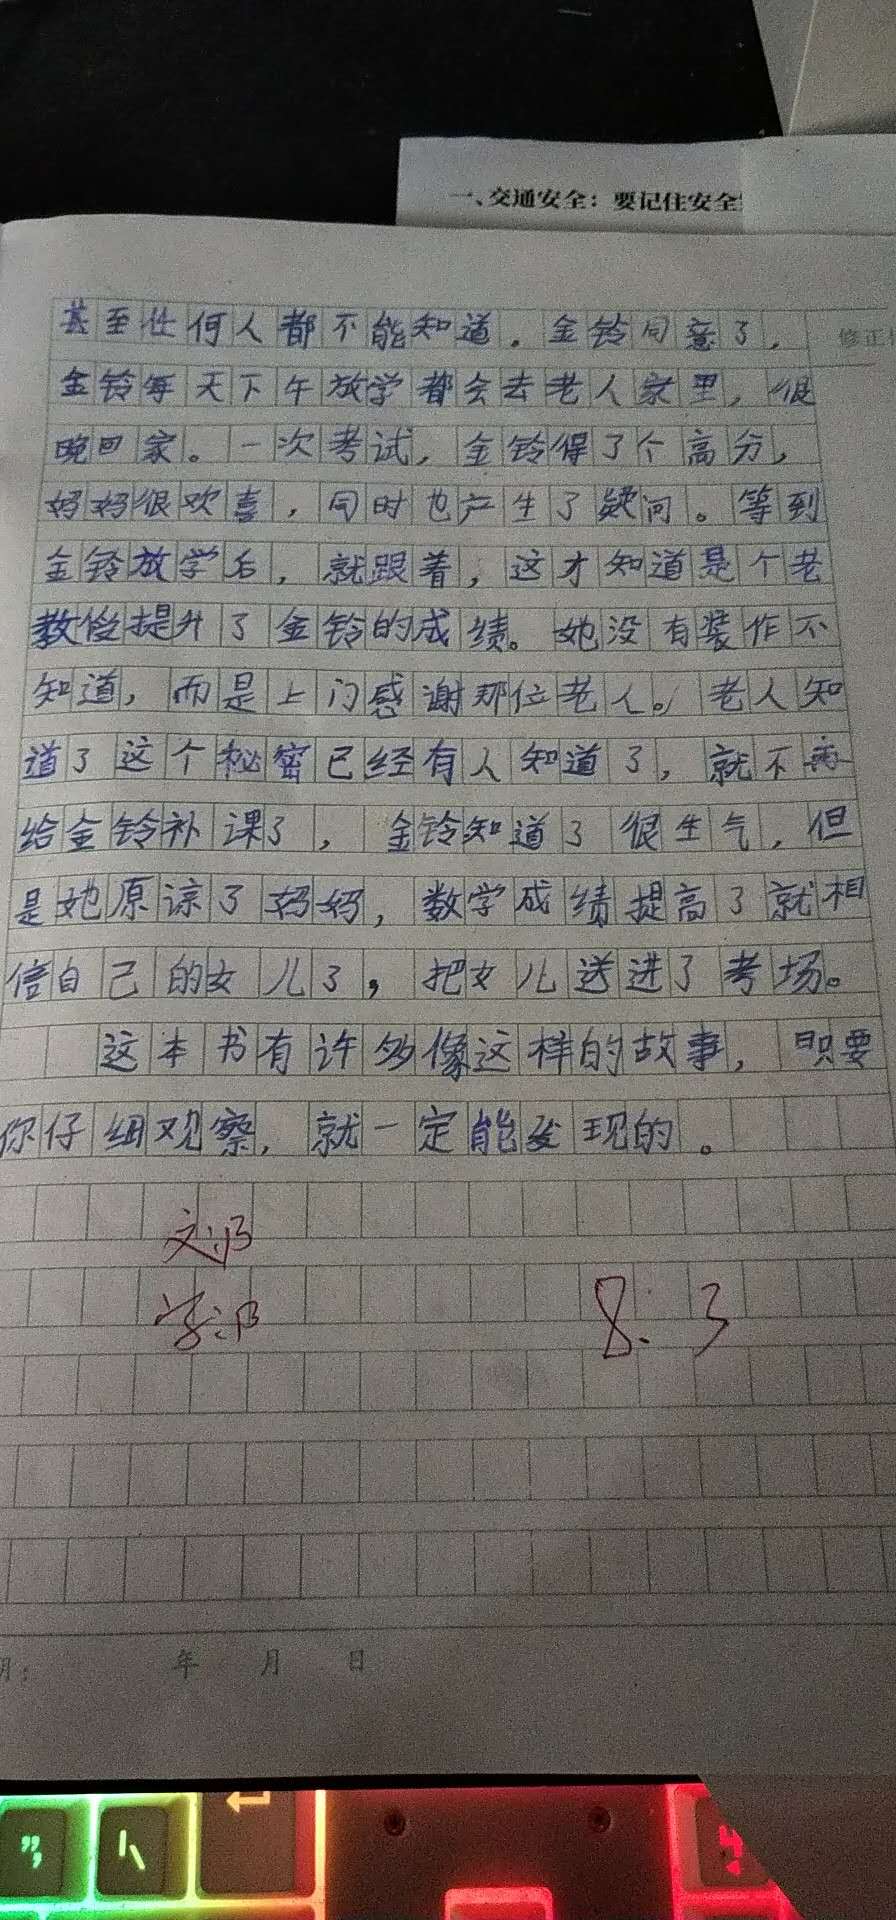 一、交通安全：要记住安全
修正
甚至任何人都不能知道。金铃同意了，
金铃每天下午放学都会去老人家里，很
晚回家。一次考试，金铃得了个高分，
妈妈很欢喜，同时也产生了疑问。等到
金铃放学后，就跟着，这才知道是个老
教俊提升了金铃的成绩。她没有装作不
知道，而是上门感谢那位老人。老人知
道了这个秘密已经有人知道了，就不再
给金铃补课了，金铃知道了很生气，但
是她原谅了妈妈，数学成绩提高了就相
信自己的女儿了，把女儿送进了考场。
这本书有许多像这样的故事，只要
你仔细观察，就一定能发现的。
8.3
期：　年　月　日